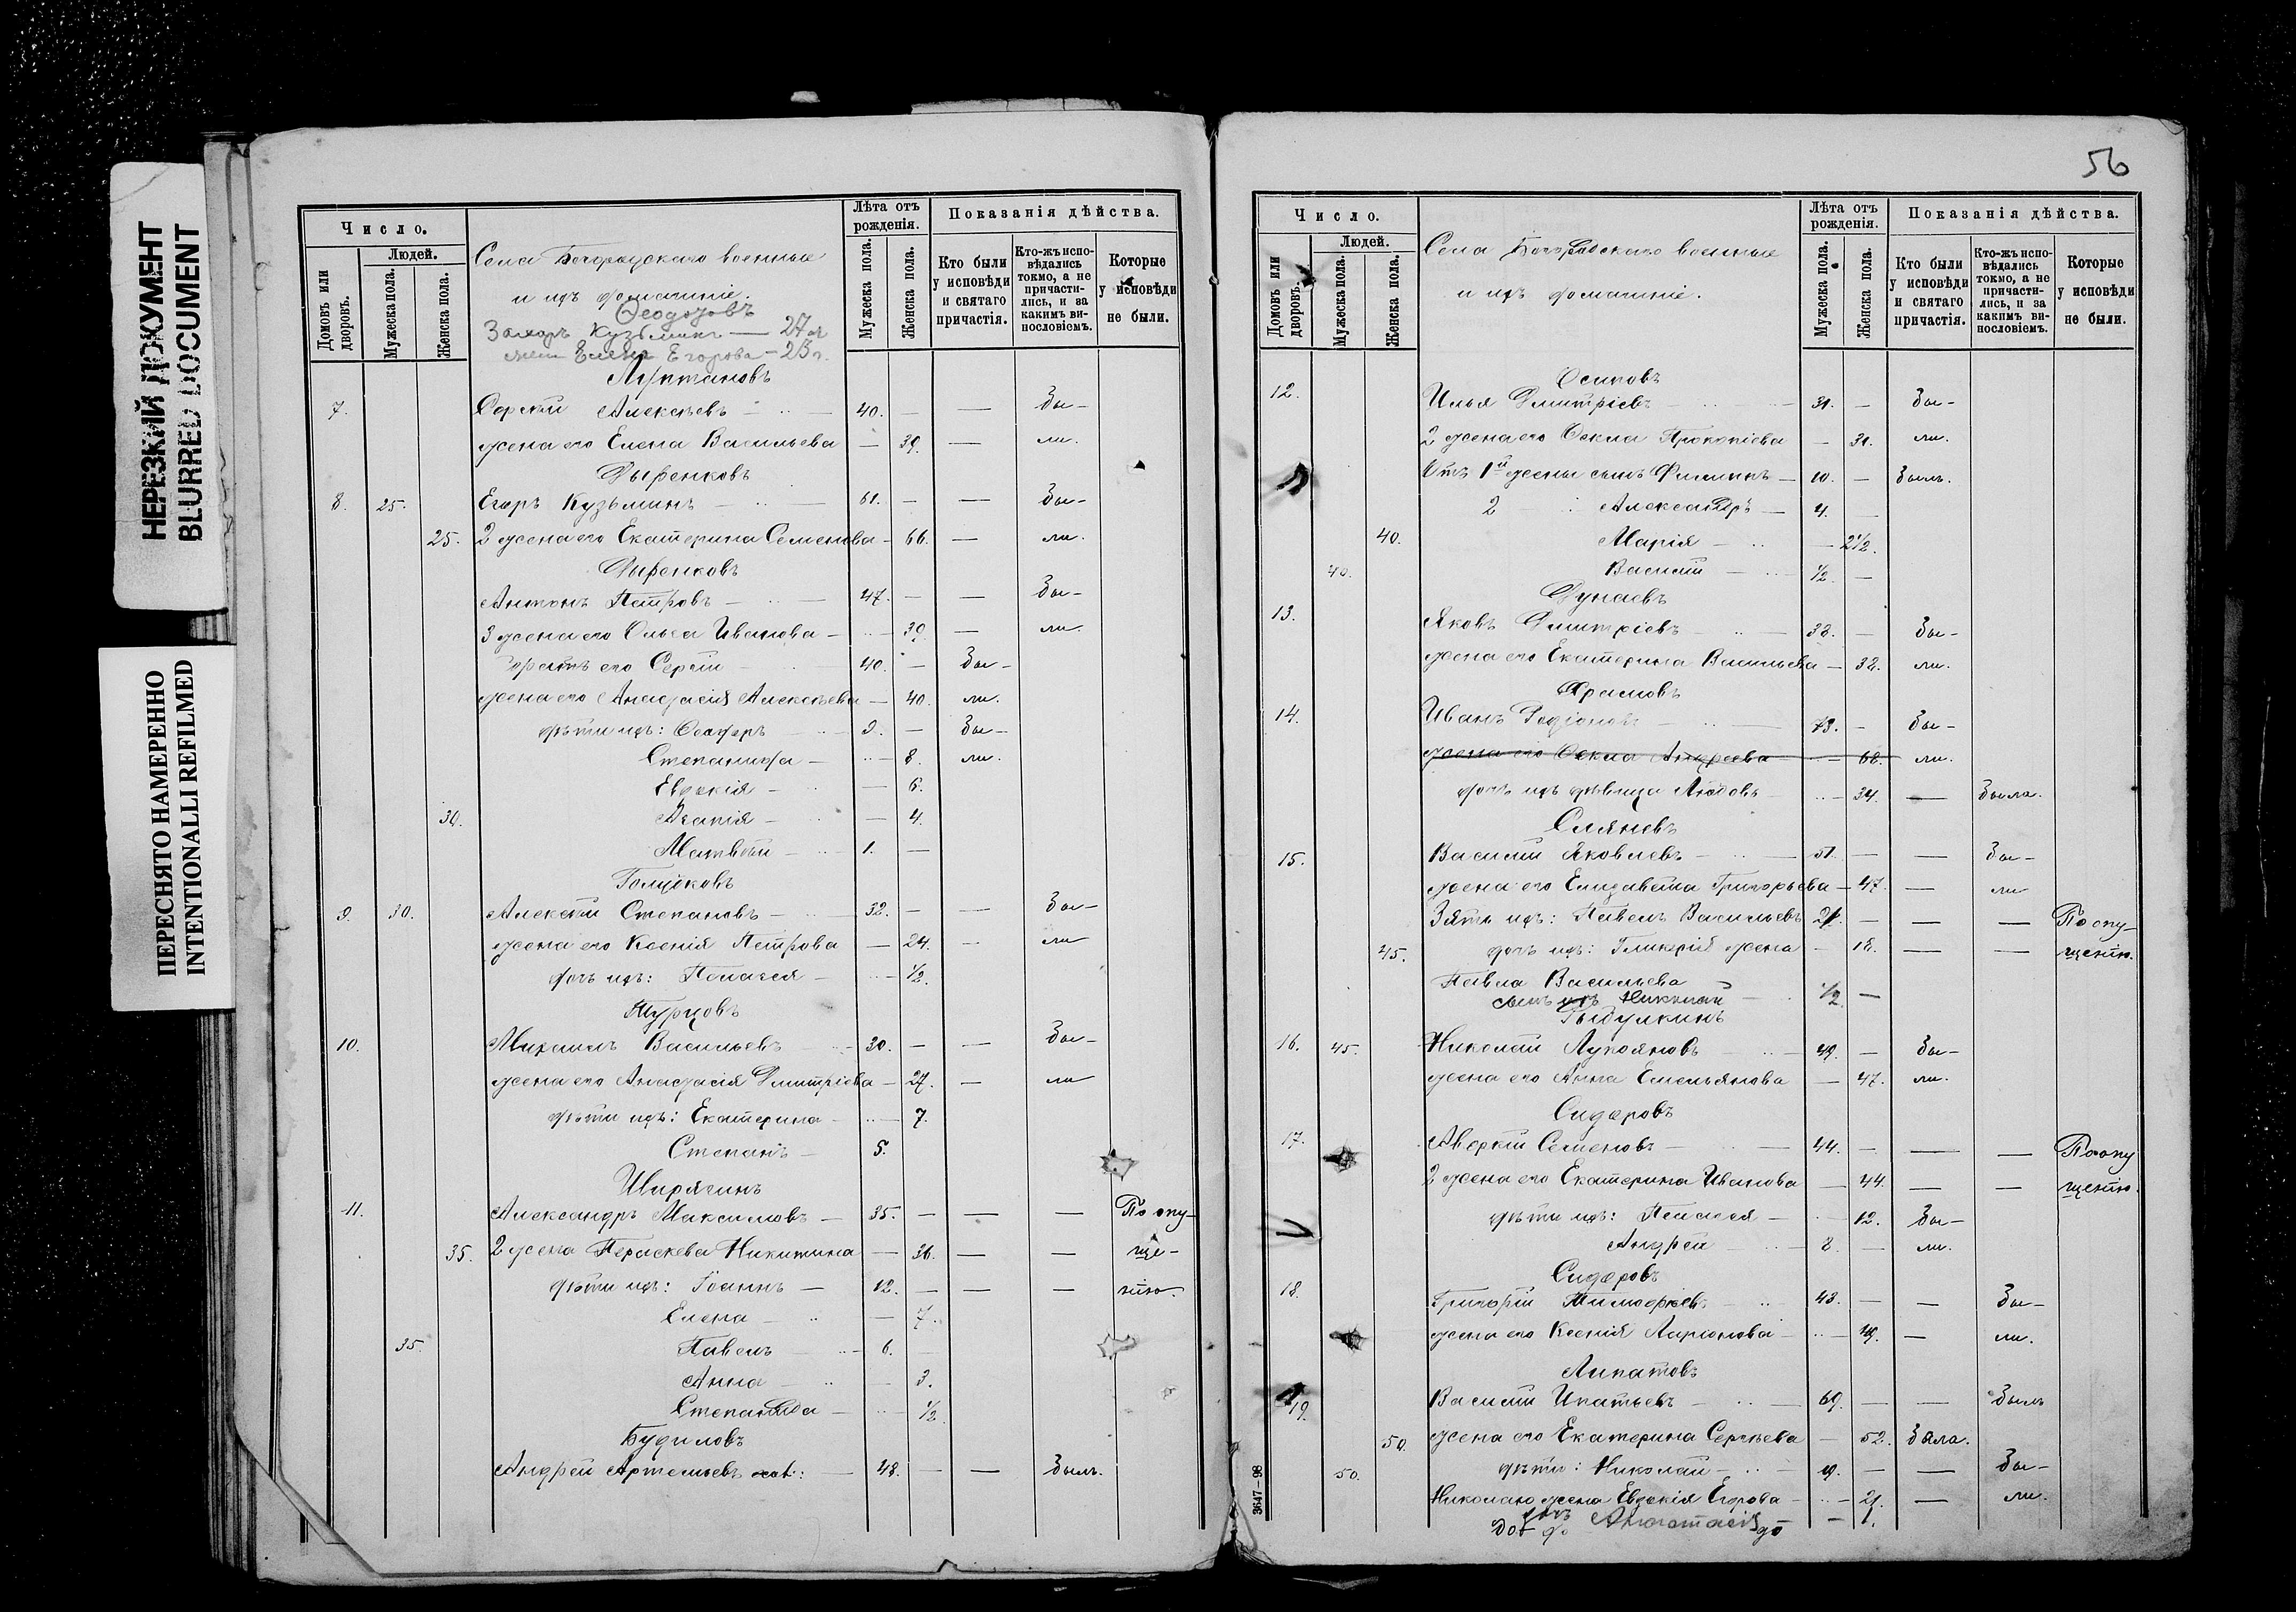 НЕРЕЗКИЙ ДОКУМЕНТ
BLURRED DOCUMENT
ПЕРЕСНЯТО НАМЕРЕННО
INTENTIONALLI REFILMED
Число.
Людей.
Домовъ или дворовъ.
Мужеска пола.
Женска пола.
Лѣта отъ рожденія.
Мужеска пола.
Женска пола.
Показанія дѣйства.
Кто были у исповѣди и святаго причастія.
Кто-жъ исповѣдались токмо, а не причастились, и за какимъ винословіемъ.
Которые у исповѣди не были.
Села Богородскаго военные
и ихъ домашніе.
Ѳеодоровъ
Захаръ Кузьминъ — 27 л
жена Елена Егорова — 23 г.
7. Сергѣй Алексѣевъ — 40. — Бы-
жена его Елена Васильева — 39. — ли.
Дыренковъ
8. 25. Егоръ Кузьминъ — 61. — — Бы-
25. 2 жена его Екатерина Семенова — 66. — ли.
Дыренковъ
Антонъ Петровъ — 47. — — Бы-
3 жена его Ольга Иванова — 39. — ли.
братъ его Сергій — 40. — Бы-
жена его Анастасія Алексѣева — 40. ли.
дѣти ихъ: Ѳеодоръ — 9. — Бы-
Степанида — 8. ли.
Евдокія — 6.
30. Агапія — 4.
Матвѣй — 1. —
Голубковъ
9. 30. Алексѣй Степановъ — 32. — — Бы-
жена его Ксенія Петрова — 24. — ли
дочь ихъ: Пелагея — 1/2.
Турцовъ
10. Михаилъ Васильевъ — 30. — — Бы-
жена его Анастасія Дмитріева — 27. — ли
дѣти ихъ: Екатерина — 7.
Степанъ — 5.
Ширягинъ
11. Александръ Максимовъ — 35. — — — По опу-
35. 2 жена Параскева Никитина — 36. — — ще-
дѣти ихъ: Іоаннъ — 12. — — — нію.
Елена — 7.
35. Павелъ — 6.
Анна — 3.
Степанида — 1/2
Будиловъ
Андрей Артемьевъ хол: — 48. — — Былъ.
56
Число.
Людей.
Домовъ или дворовъ.
Мужеска пола.
Женска пола.
Лѣта отъ рожденія.
Мужеска пола.
Женска пола.
Показанія дѣйства.
Кто были у исповѣди и святаго причастія.
Кто-жъ исповѣдались токмо, а не причастились, и за какимъ винословіемъ.
Которые у исповѣди не были.
Села Богородскаго военные
и ихъ домашніе.
Осиповъ
12. Илья Дмитріевъ — 31. — Бы-
2 жена его Ѳекла Прокопіева — 31. ли.
Отъ 1й жены сынъ Филиппъ — 10. — Былъ.
2 Александръ — 4. —
40. Марія — 2 1/2.
40. Василій — 1/2. —
Дунаевъ
13. Яковъ Дмитріевъ — 32. — Бы-
жена его Екатерина Васильева — 32. ли.
Храмовъ
14. Иванъ Родіоновъ — 73. — Бы-
жена его Ѳекла Андреева — 68. ли.
дочь ихъ дѣвица Любовь — 34. — Была.
15. Василій Яковлевъ — 51. — — Бы-
жена его Елизавета Григорьева — 47. — ли
Зять ихъ: Павелъ Васильевъ 21. — — — По опу-
45. дочь ихъ: Гликерія жена — 18. — — щенію.
Павла Васильева
сынъ ихъ Николай — 1/2 —
16. 45. Николай Лукояновъ — 49. — Бы-
жена его Анна Емельянова — 47. ли.
Сидоровъ
17. Аверкій Семеновъ — 44. — — — По опу
2 жена его Екатерина Иванова — 44. — — щенію.
дѣти ихъ: Пелагея — 12. Бы-
Андрей — 8. — ли.
Сидоровъ
18. Григорій Тимоѳеевъ — 48. — — Бы-
жена его Ксенія Ларіонова — 49. — ли.
Липатовъ
19. Василій Ипатьевъ — 69. — — Былъ
50. жена его Екатерина Сергѣева — 52. Была.
50. дѣти: Николай — 19. — — Бы-
Николаю жена Евдокія Егорова — 21. — ли.
дочь Анастасія — 1.
3647—98